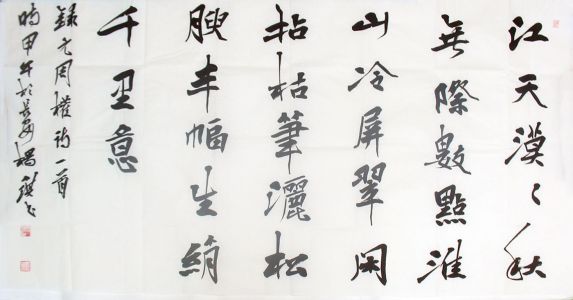 江天漠〻秋
無際數點淮
山冷屏翠闲
拈枯筆灑松
腴半幅生綃
千里意
錄元周權詩一首
時甲午於長安楊